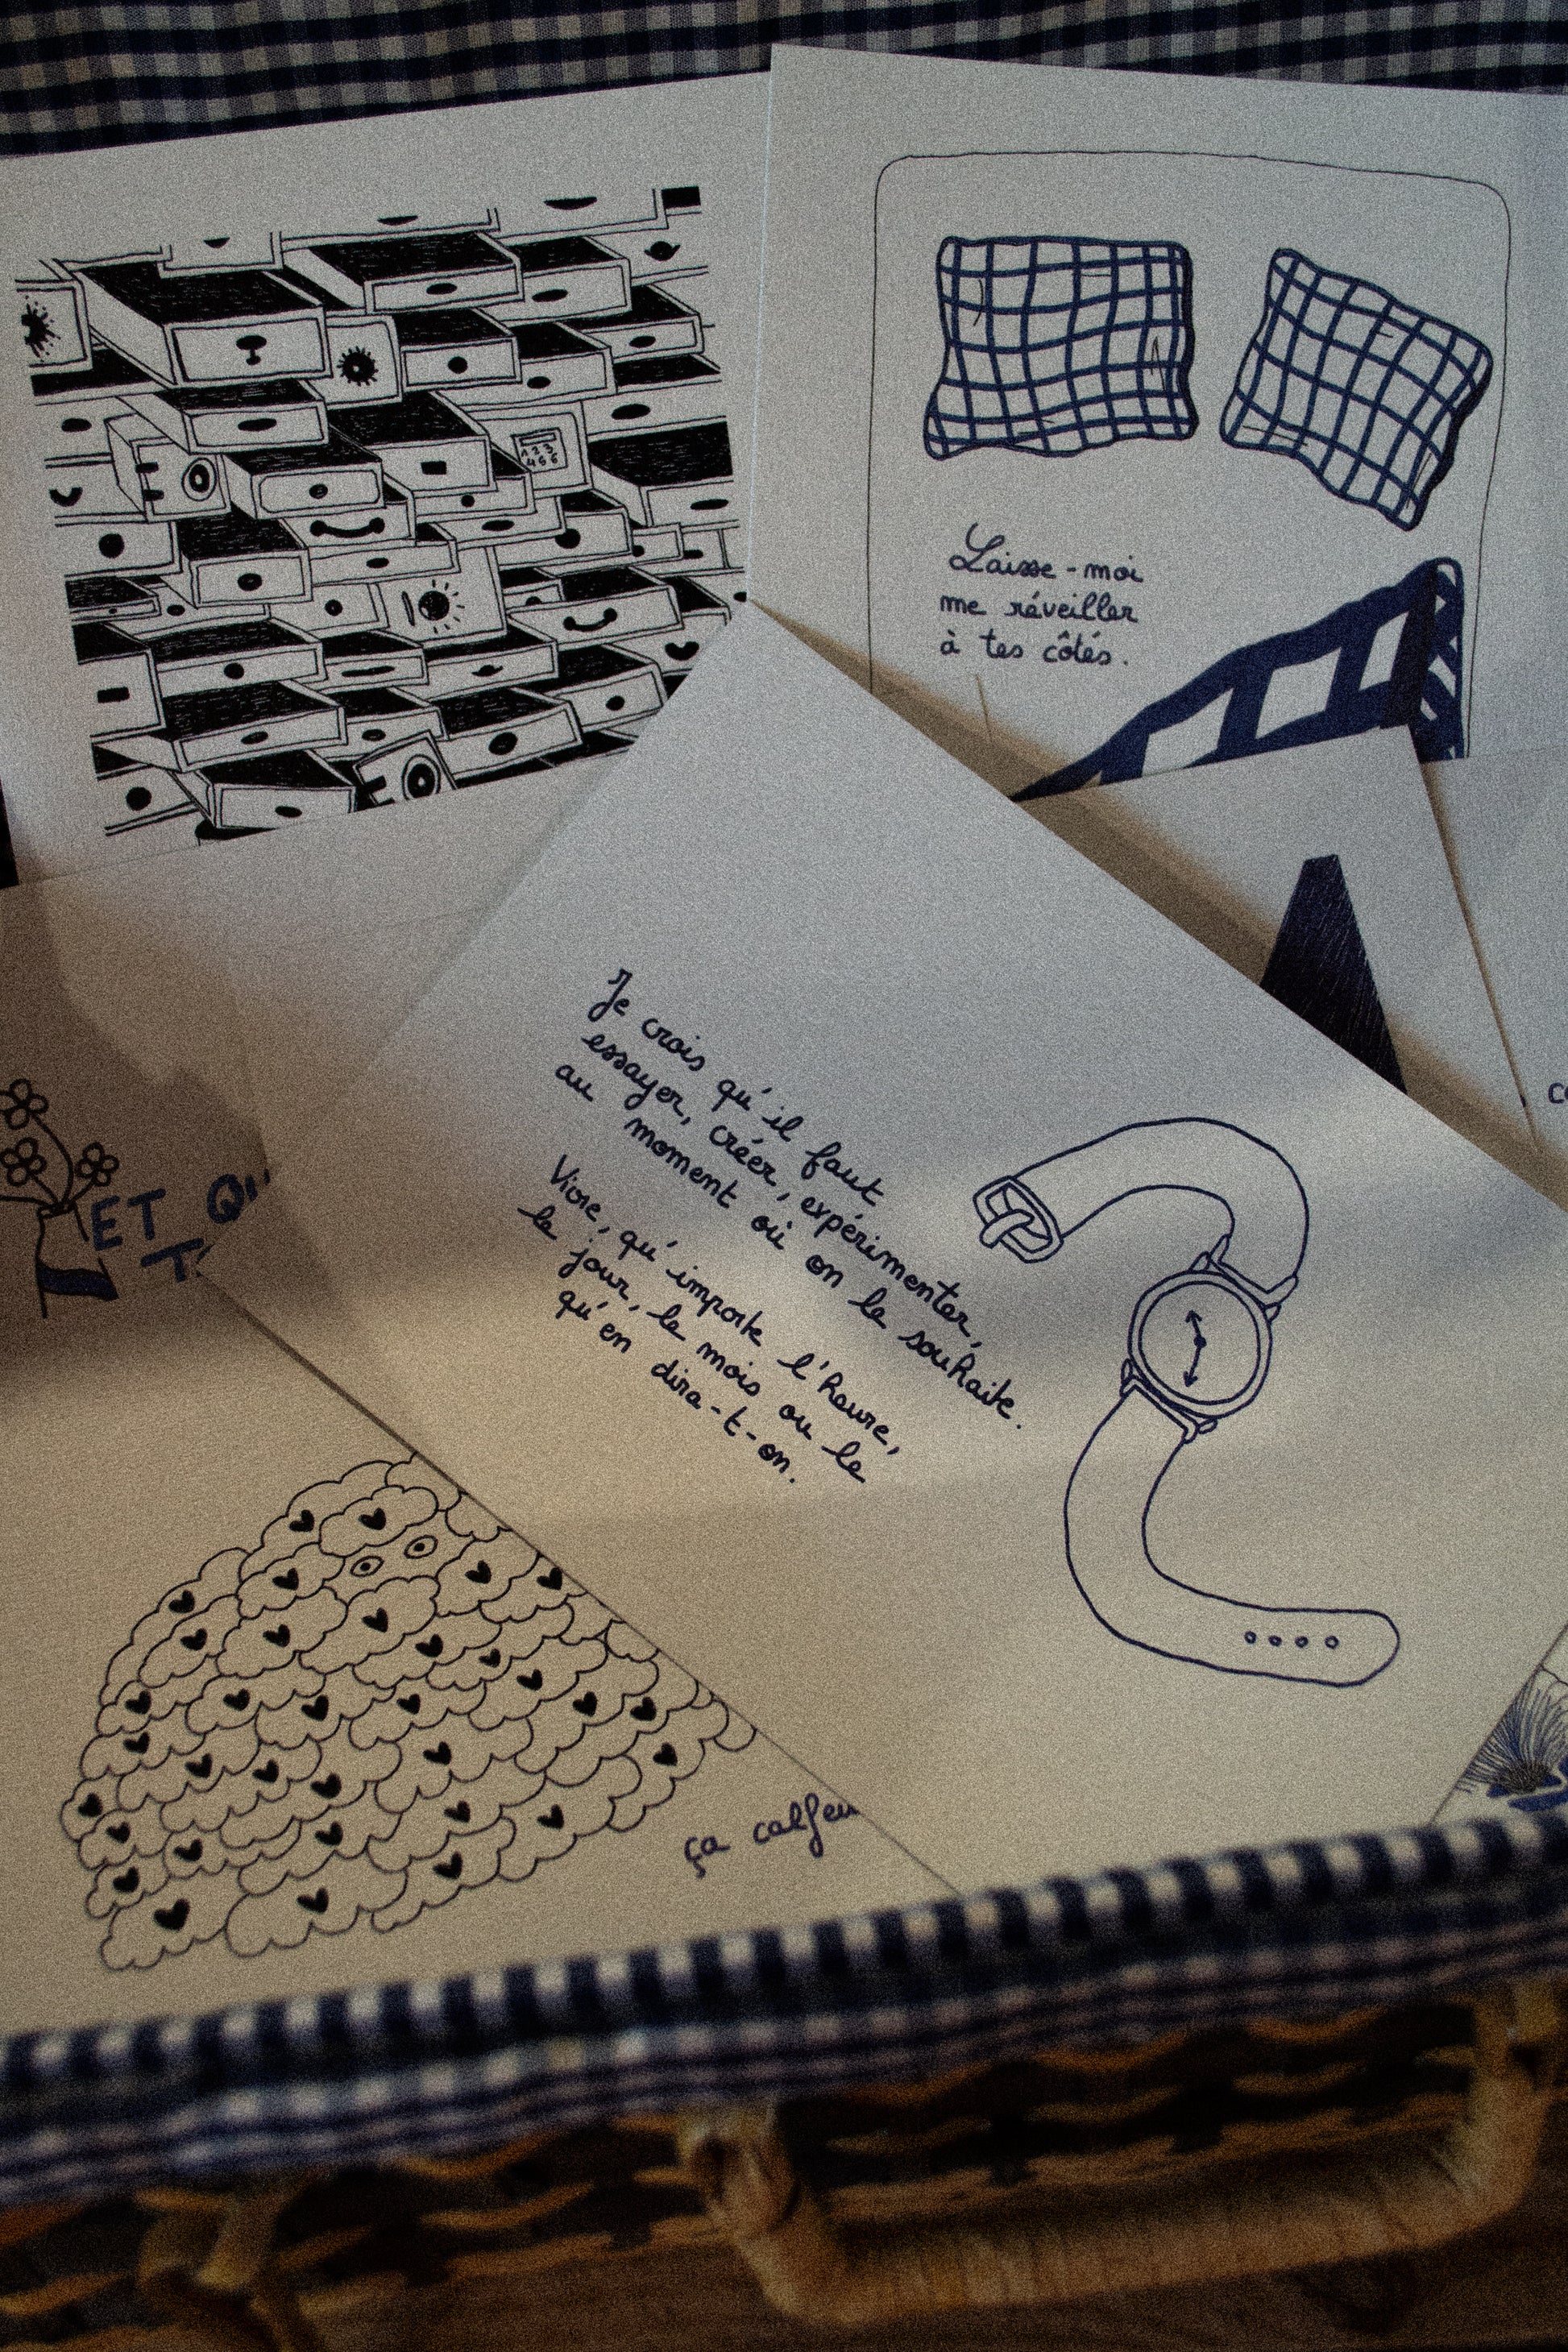 1 2 3
4 5 6
Laisse-moi
me réveiller
à tes côtés.
Je crois qu'il faut
essayer, créer, expérimenter,
au moment où on le souhaite.
Vivre, qu'importe l'heure,
le jour, le mois ou le
qu'en dira-t-on.
ET QU'
T'
ça calfeu